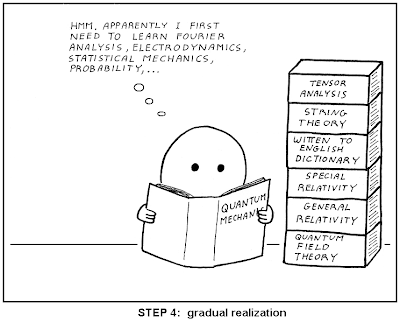 HMM, APPARENTLY I FIRST
NEED TO LEARN FOURIER
ANALYSIS, ELECTRODYNAMICS,
STATISTICAL MECHANICS,
PROBABILITY,...
QUANTUM
MECHANI
TENSOR
ANALYSIS
STRING
THEORY
WITTEN TO
ENGLISH
DICTIONARY
SPECIAL
RELATIVITY
GENERAL
RELATIVITY
QUANTUM
FIELD
THEORY
STEP 4: gradual realization